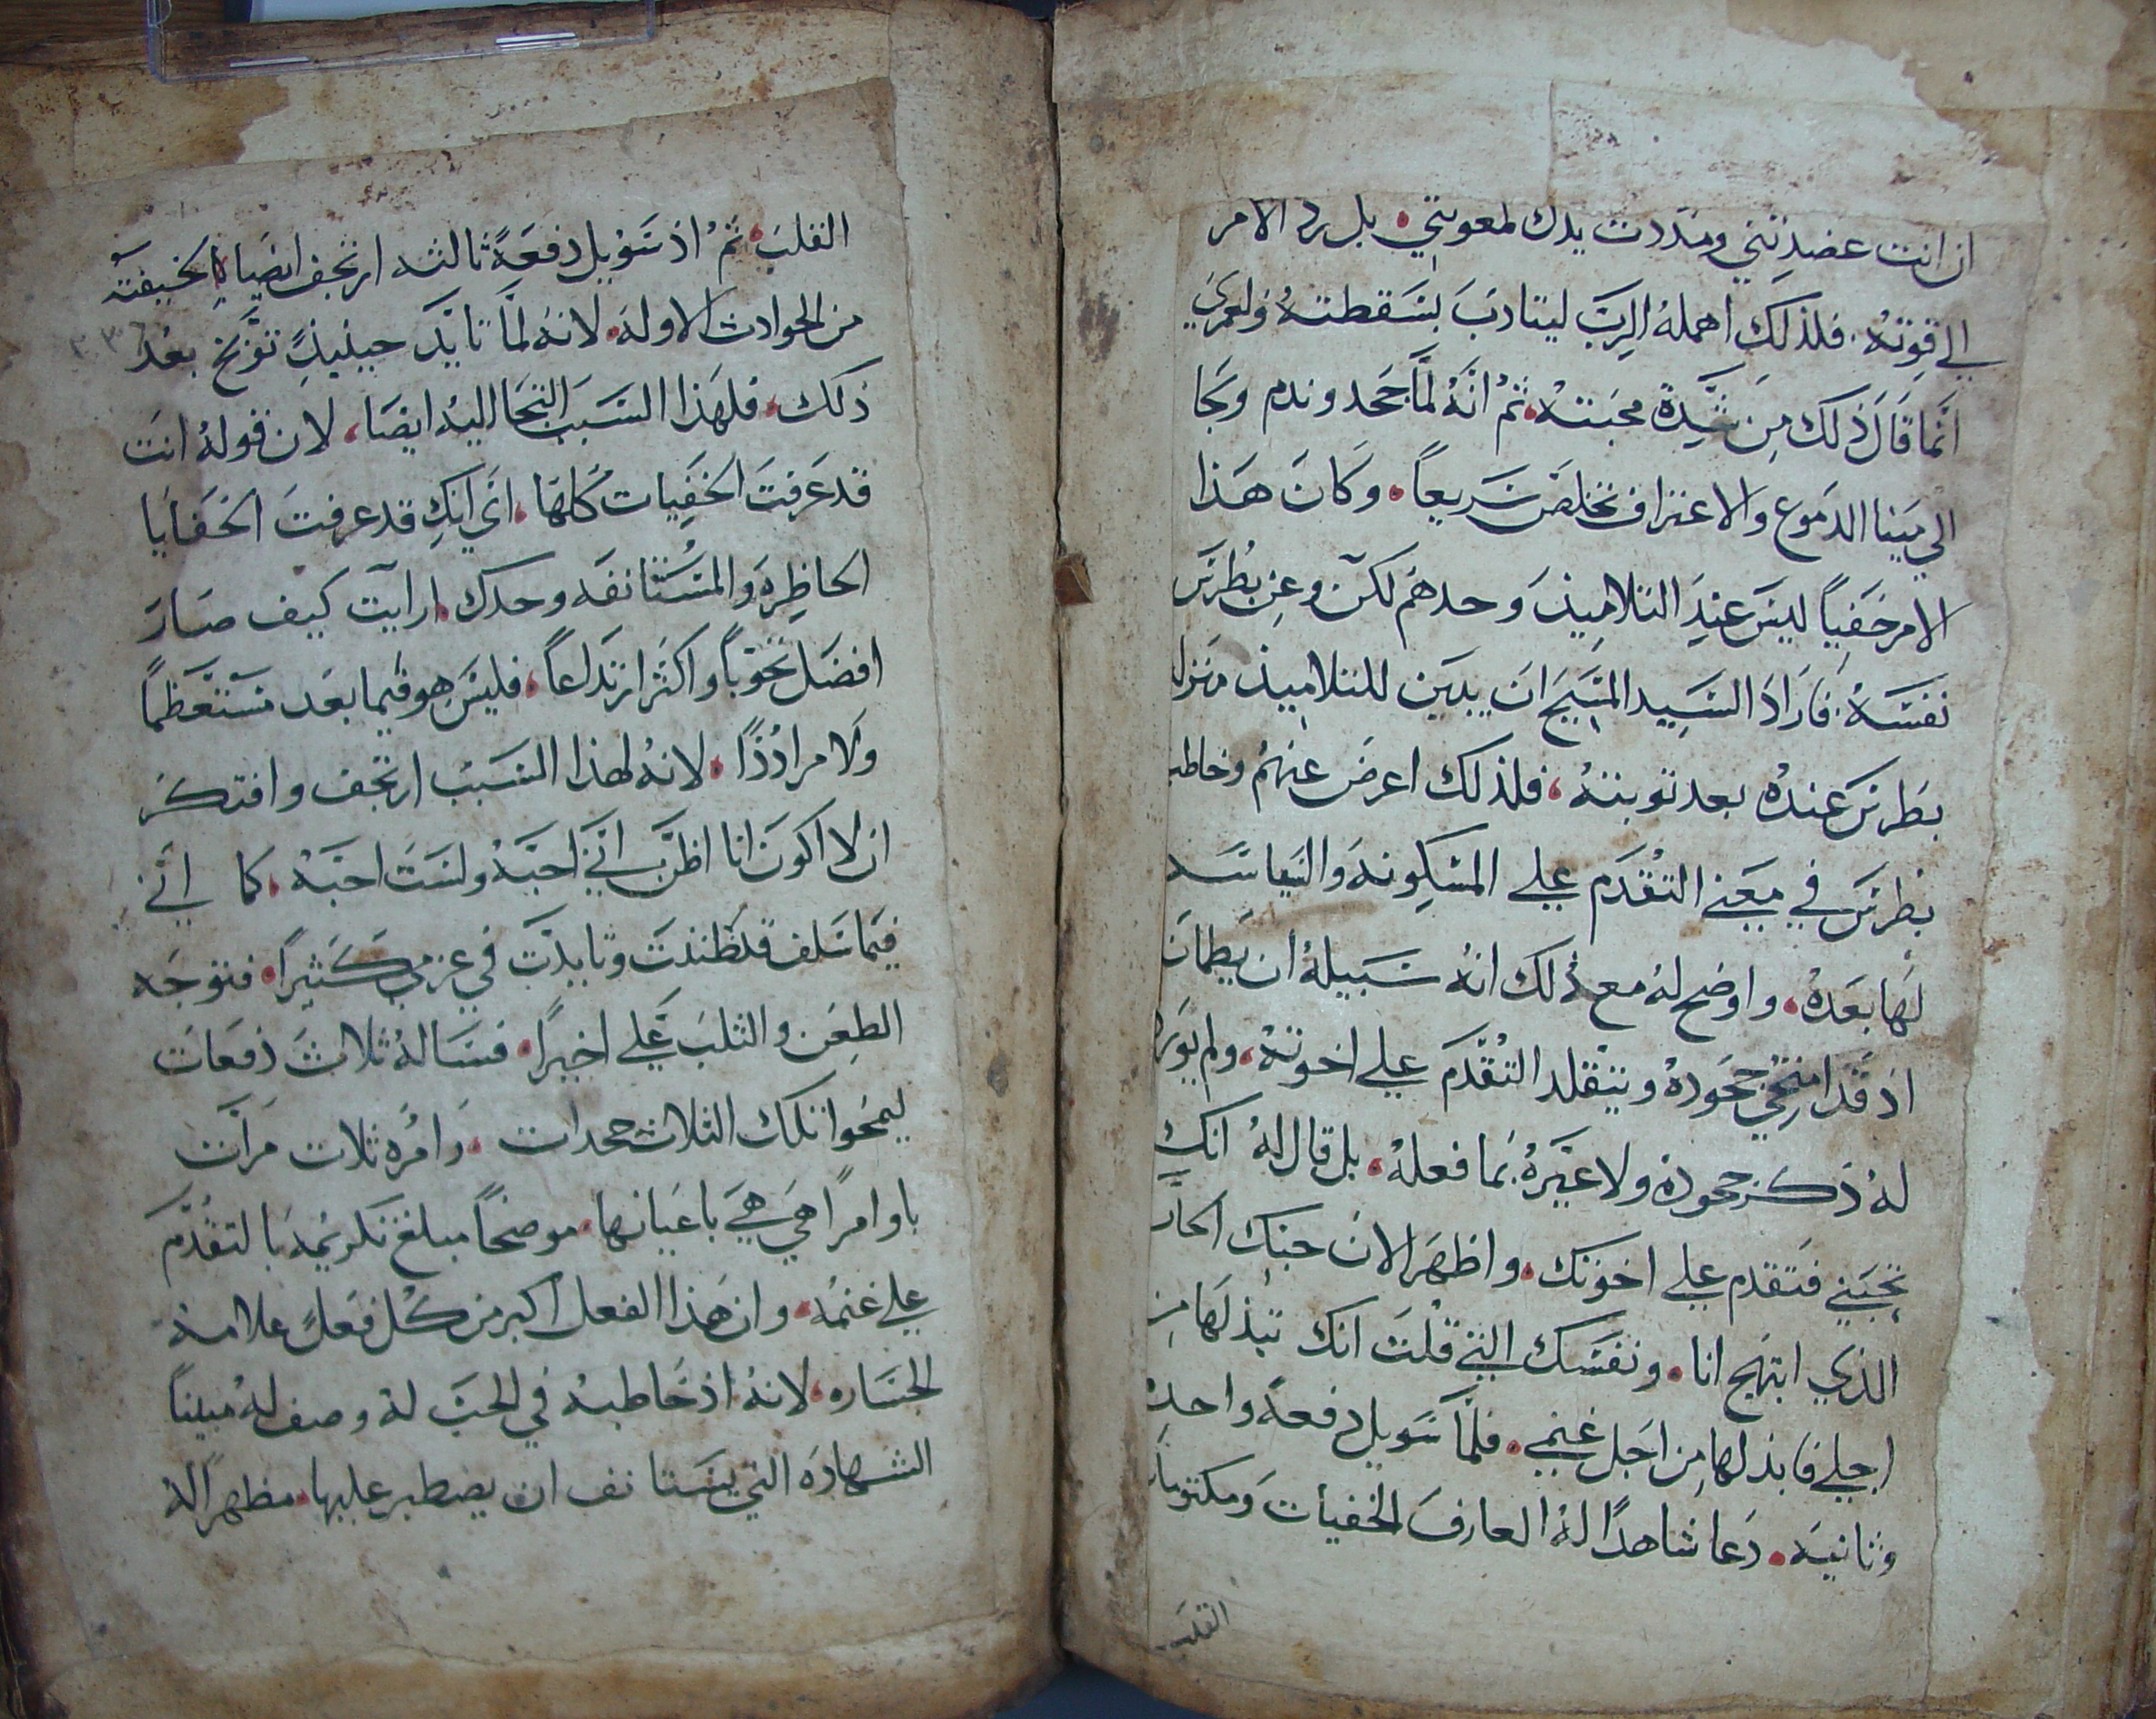 ان انت عضدتني ومددت يدك لمعونتي. بل رد الامر
الي قوته. فلذلك اهمله الرب ليتادب بسقطته ولعمري
انما قال ذلك من شدة محبته. ثم انه لما جحد وندم وجا
الي مينا الدموع والاعتراف تخلص سريعاً. وكان هذا
الامر خفياً ليس عند التلاميذ وحدهم لكن وعن بطرس
نفسه. فاراد السيد المسيح ان يبين للتلاميذ منزلة
بطرس عنده بعد توبته، فلذلك اعرض عنهم وخاطب
بطرس في معني التقدم علي المسكونه والسياسه
لها بعده. واوضح له مع ذلك انه سبيله ان يطمان
اذ قد امتحي جحوده ويتقلد التقدم علي اخوته. ولم يورد
له ذكر جحوده ولا عيره بما فعله. بل قال له انك
تحبني فتقدم علي اخوتك. واظهر الان حبك الحار
الذي ابتهج انا. ونفسك التي قلت انك تبذلها من
اجلي فابذلها من اجل غنمي. فلما سويل دفعة واحده
وثانيه. دعا شاهداً له العارف الخفيات ومكتومات
القلب
القلب. ثم اذ سويل دفعةً ثالثه ارتجف ايضا لخيفته
من الحوادث الاوله. لانه لما تايد حينيذٍ توبخ بعد
ذلك. فلهذا السبب التجا اليه ايضا، لان قوله انت
قد عرفت الخفيات كلها. اي انك قد عرفت الخفايا
الحاظره والمستانفه وحدك. ارايت كيف صار
افضل تحوباً واكثر ارتداعاً، فليس هو فيما بعد مستعظماً
ولا مراددًا. لانه لهذا السبب ارتجف وافتكر
ان لا اكون انا اظن انني احبه ولست احبه. كما انني
فيما سلف قد ظننت وتايدت في عزمي كثيرًا. فتوجه
الطعن والثلب علي اخيرًا. فساله ثلاث دفعات
ليمحوا تلك الثلاث جحدات. وامره ثلاث مرات
باوامرًا هي هي باعيانها. موضحاً مبلغ تكريمه بالتقدم
علي غنمه. وان هذا الفعل اكبر من كل فعلٍ علامة
لخساره. لانه اذ خاطبه في الحب له وصف له مبيناً
الشهاده التي يستانف ان يصطبر عليها. مظهراً له